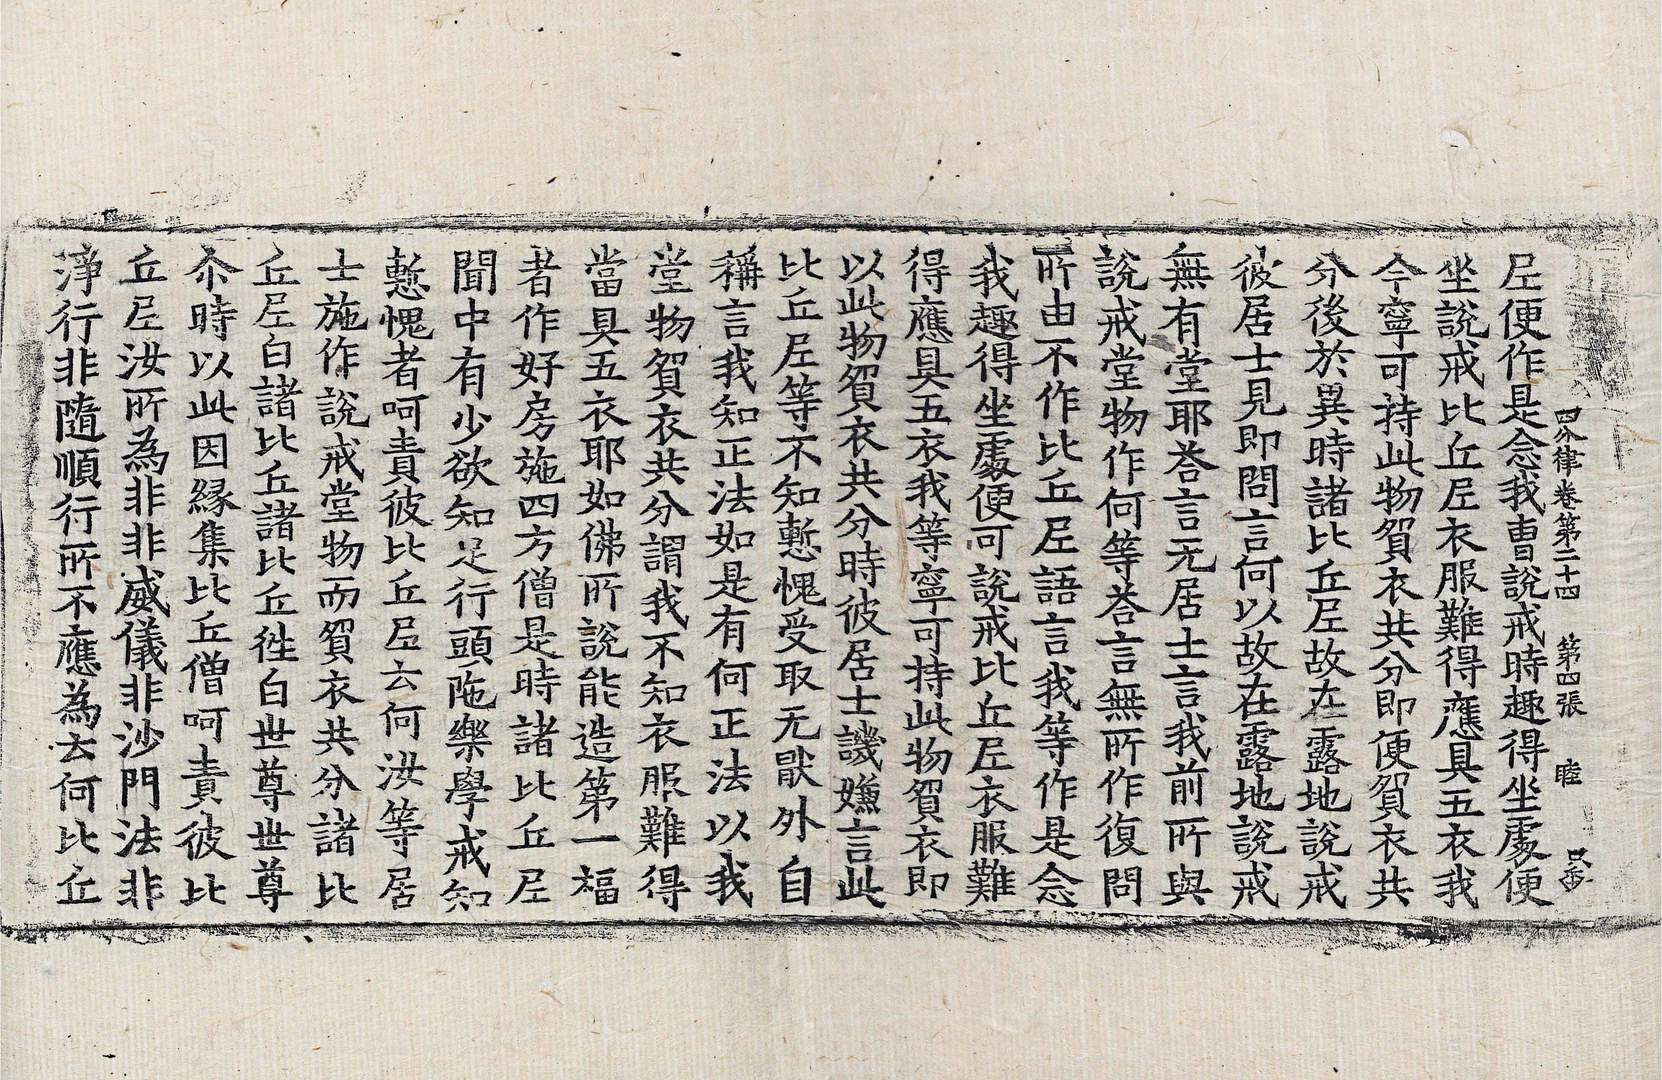 四分律卷第二十四　第四張　睦
尼便作是念我曹說戒時趣得坐處便
坐說戒比丘尼衣服難得應具五衣我
今寧可持此物貿衣共分即便貿衣共
分後於異時諸比丘尼故在露地說戒
彼居士見即問言何以故在露地說戒
無有堂耶荅言无居士言我前所與
說戒堂物作何等荅言無所作復問
所由不作比丘尼語言我等作是念
我趣得坐處便可說戒比丘尼衣服難
得應具五衣我等寧可持此物貿衣即
以此物貿衣共分時彼居士譏嫌言此
比丘尼等不知慙愧受取无猒外自
稱言我知正法如是有何正法以我
堂物貿衣共分謂我不知衣服難得
當具五衣耶如佛所說能造第一福
者作好房施四方僧是時諸比丘尼
聞中有少欲知足行頭陁樂學戒知
慙愧者呵責彼比丘尼云何汝等居
士施作說戒堂物而貿衣共分諸比
丘尼白諸比丘諸比丘徃白世尊世尊
尒時以此因緣集比丘僧呵責彼比
丘尼汝所為非非威儀非沙門法非
淨行非隨順行所不應為云何比丘